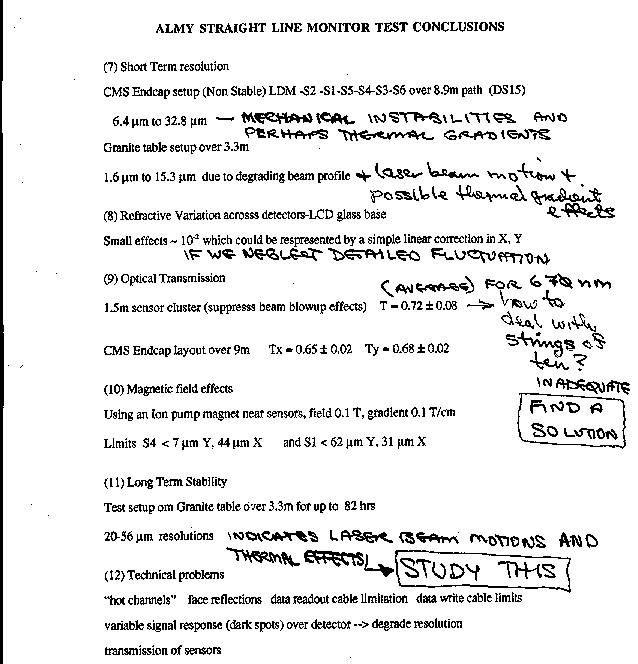 ALMY STRAIGHT LINE MONITOR TEST CONCLUSIONS
(7) Short Term resolution
CMS Endcap setup (Non Stable) LDM -S2 -S1-S5-S4-S3-S6 over 8.9m path (DS15)
6.4 μm to 32.8 μm — MECHANICAL INSTABILITIES AND
PERHAPS THERMAL GRADIENTS
Granite table setup over 3.3m
1.6 μm to 15.3 μm due to degrading beam profile + laser beam motion +
possible thermal gradient
effects
(8) Refractive Variation acrosss detectors-LCD glass base
Small effects ~ 10⁻² which could be respresented by a simple linear correction in X, Y
IF WE NEGLECT DETAILED FLUCTUATION
(9) Optical Transmission
(AVERAGE) FOR 670 nm
1.5m sensor cluster (suppresss beam blowup effects) T = 0.72 ± 0.08 → how to
deal with
strings of
ten?
CMS Endcap layout over 9m Tx = 0.65 ± 0.02 Ty = 0.68 ± 0.02
INADEQUATE
(10) Magnetic field effects
FIND A
SOLUTION
Using an Ion pump magnet near sensors, field 0.1 T, gradient 0.1 T/cm
Limits S4 < 7 μm Y, 44 μm X and S1 < 62 μm Y, 31 μm X
(11) Long Term Stability
Test setup om Granite table over 3.3m for up to 82 hrs
20-56 μm resolutions INDICATES LASER BEAM MOTIONS AND
THERMAL EFFECTS → STUDY THIS
(12) Technical problems
"hot channels" face reflections data readout cable limitation data write cable limits
variable signal response (dark spots) over detector --> degrade resolution
transmission of sensors